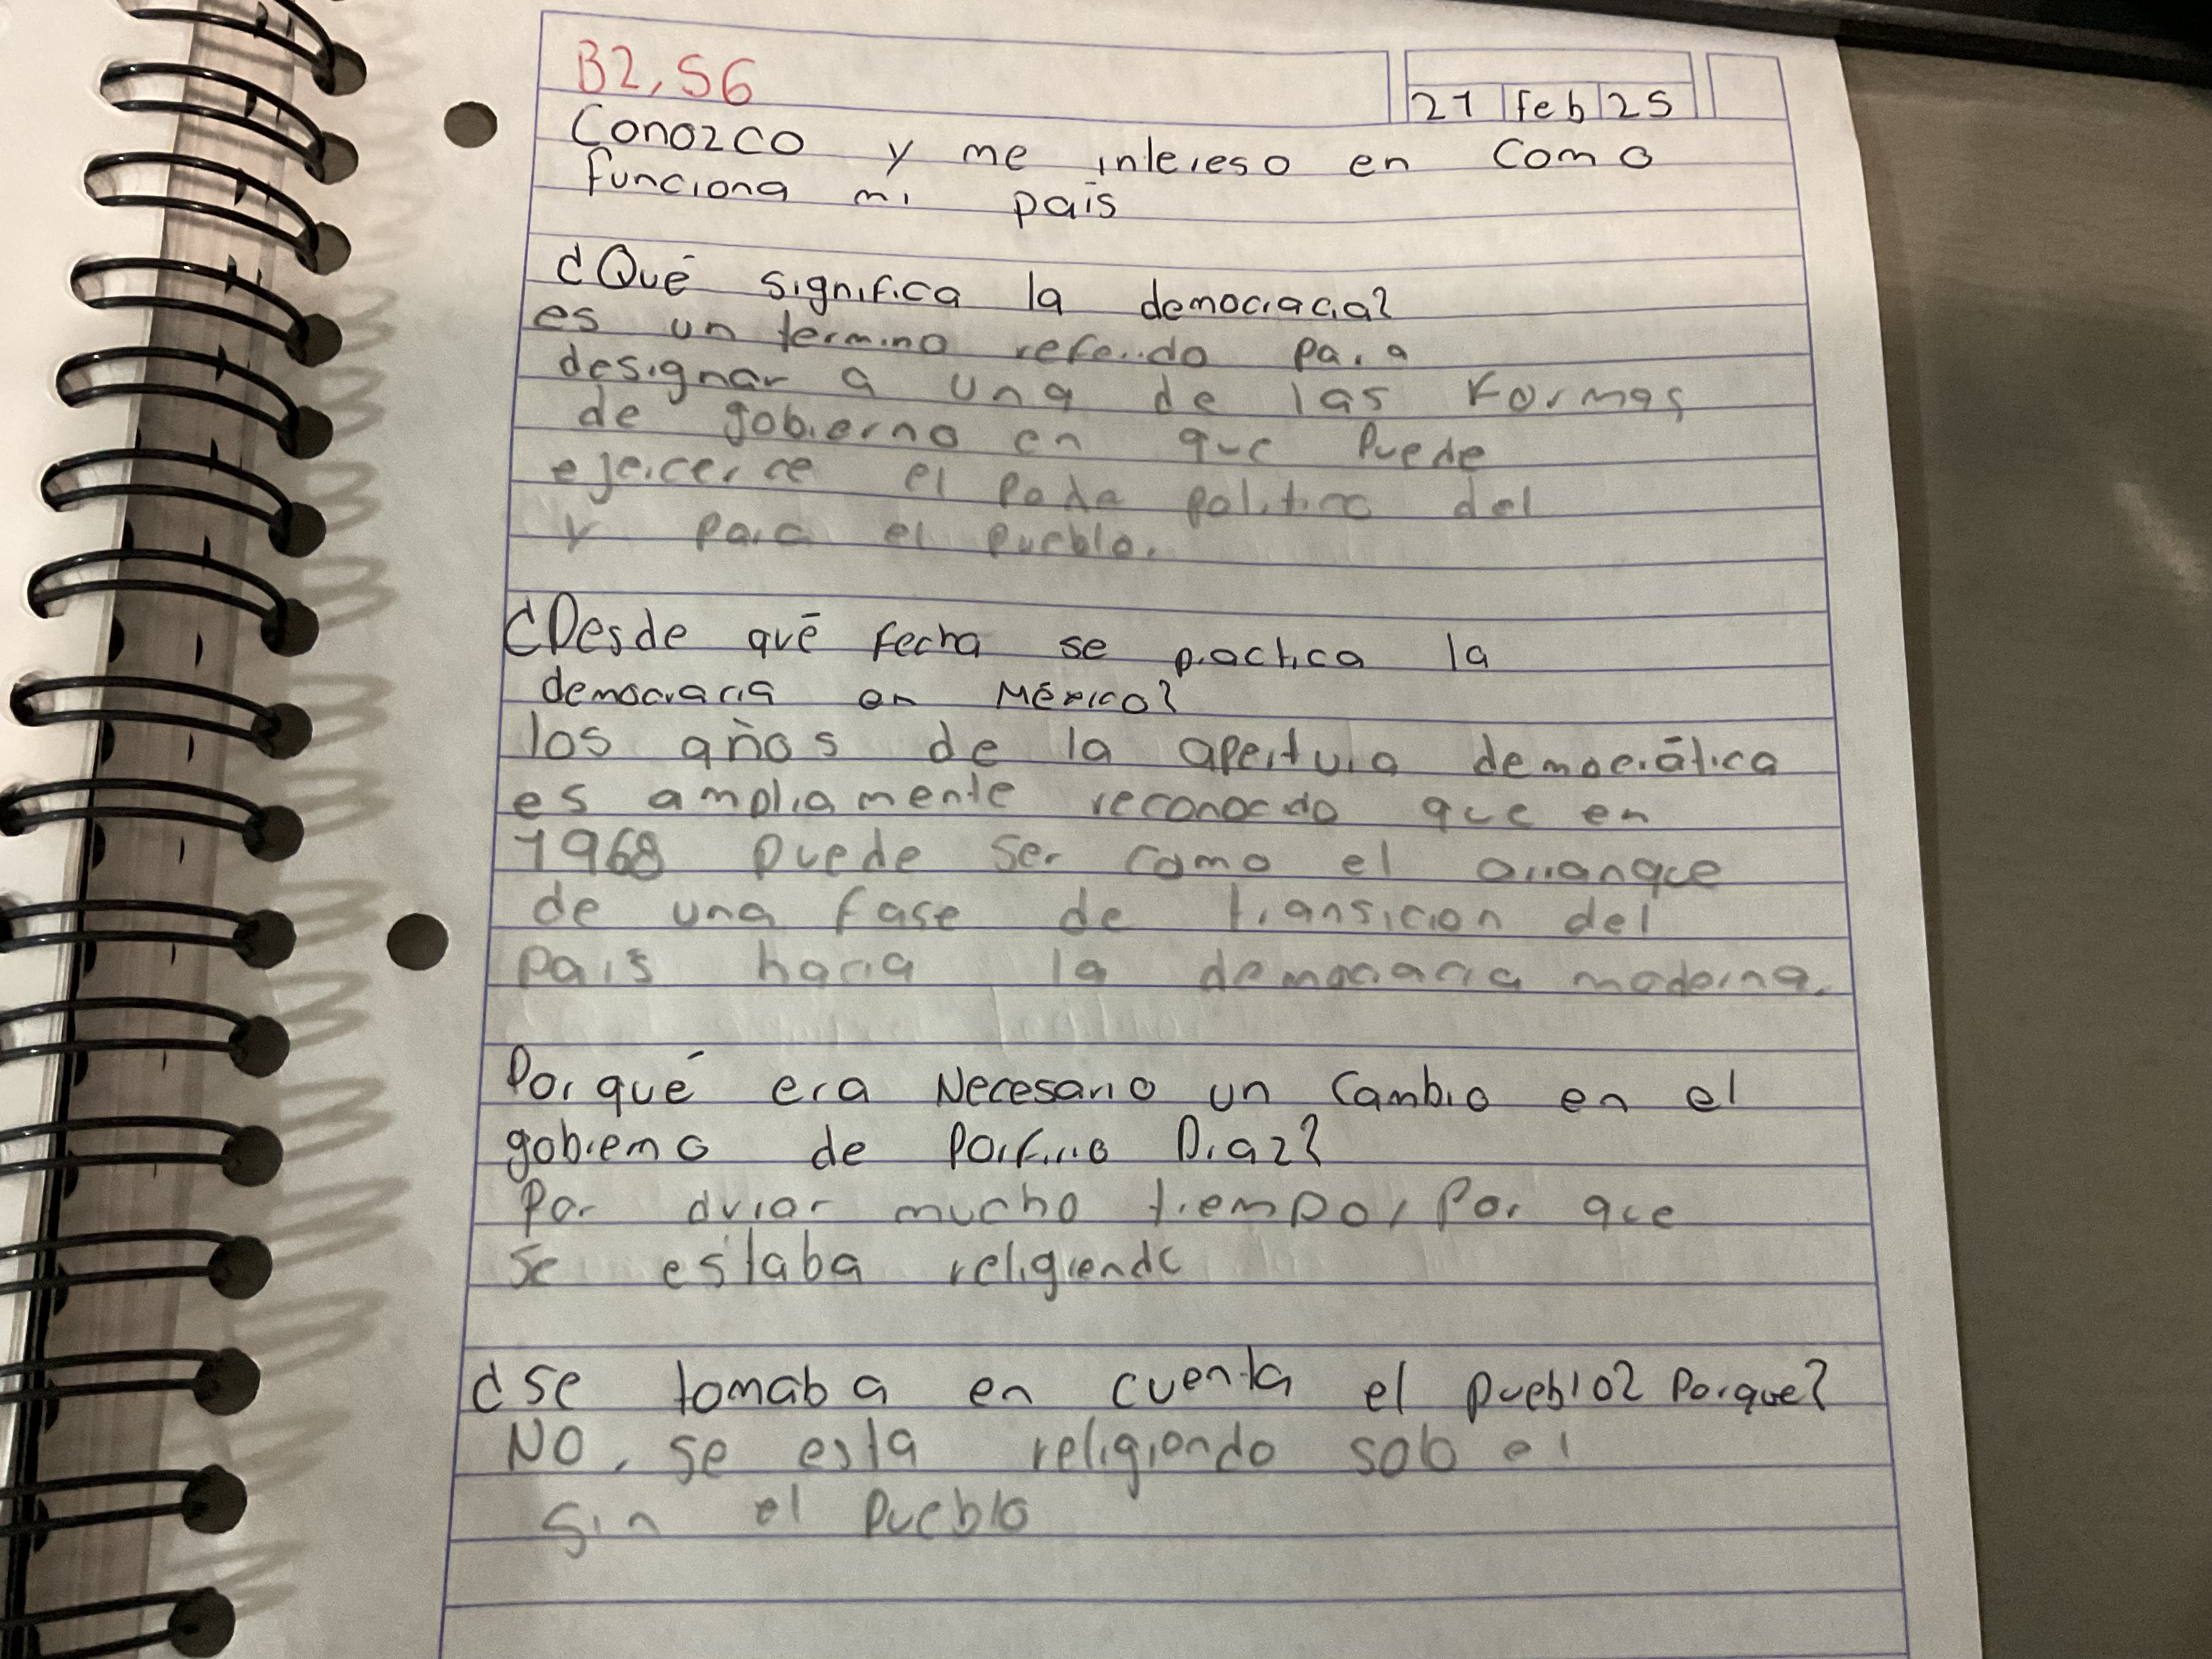 B2, S6
21 feb 25
Conozco y me intereso en como
funciona mi país
¿Qué significa la democracia?
es un termino referido para
designar a una de las formas
de gobierno en que puede
ejercerce el pode politico del
y para el pueblo.
¿Desde qué fecha se practica la
democracia en México?
los años de la apertura democrática
es ampliamente reconocido que en
1968 puede ser como el arranque
de una fase de transicion del
pais hacia la democracia moderna.
Por qué era Necesario un cambio en el
gobierno de Porfirio Diaz?
Por durar mucho tiempo, Por que
se estaba religiendo
¿Se tomaba en cuenta el pueblo? Porque?
NO, se esta religiendo solo el
sin el pueblo